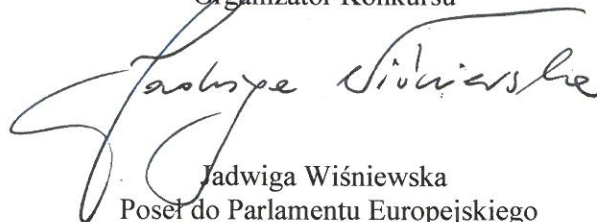 Organizator Konkursu
Jadwiga Wiśniewska
Jadwiga Wiśniewska
Poseł do Parlamentu Europejskiego